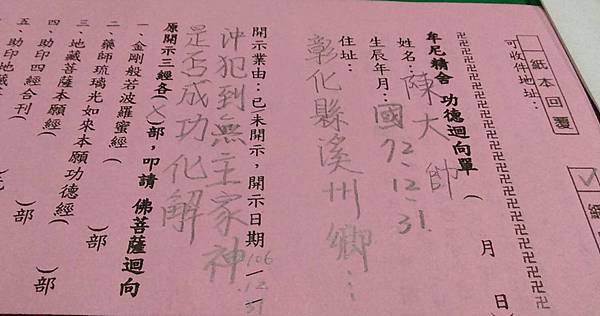 紙本回覆
可收件地址：
卍卍卍卍卍卍卍卍卍卍卍卍卍卍卍卍卍卍卍卍卍卍
牟尼精舍 功德迴向單 ( 月 日)
姓名：陳大帥
生辰年月：國72.12.31.
住址：
彰化縣溪州鄉...
開示業由：已未開示，開示日期 106 / 12 / 31
沖犯到無主家神
是否成功化解
原開示三經各(X)部，叩請 佛菩薩迴向
一、金剛般若波羅蜜經( )部
二、藥師琉璃光如來本願功德經( )部
三、地藏菩薩本願經( )部
四、助印四經合刊( )部
五、助印地藏